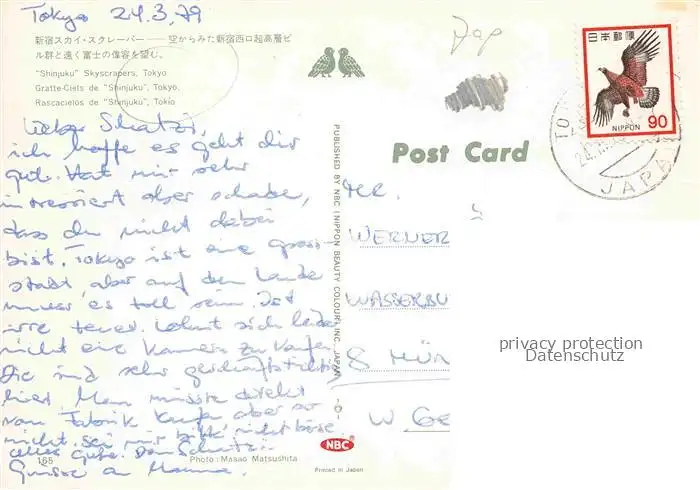 Tokyo 24.3.79
新宿スカイ・スクレーパー——空からみた新宿西口超高層ビ
ル群と遠く富士の偉容を望む。
"Shinjuku" Skyscrapers, Tokyo
Gratte-Ciels de "Shinjuku", Tokyo.
Rascacielos de "Shinjuku", Tokio
Lieber Schatzi,
ich hoffe es geht dir
gut. Hat mir sehr
interessiert aber schade,
dass du nicht dabei
bist. Tokyo ist eine gross-
stadt, aber auf dem Lande
muss es toll sein. Ist
irre teuer. Lohnt sich leider
nicht eine Kamera zu kaufen
Die sind sehr geschäftstüchtig
hier. Man müsste direkt
von Fabrik kaufen aber so
nicht. Sei mir bitte nicht böse
alles Gute. Dein Schatzi
Grüsse an Mamma.
165
Photo: Masao Matsushita
PUBLISHED BY NBC (NIPPON BEAUTY COLOUR) INC. JAPAN
NBC
Printed in Japan
Jap
Post Card
日本郵便
NIPPON 90
JAPAN
WERNER
8 MÜN
W GE
privacy protection
Datenschutz